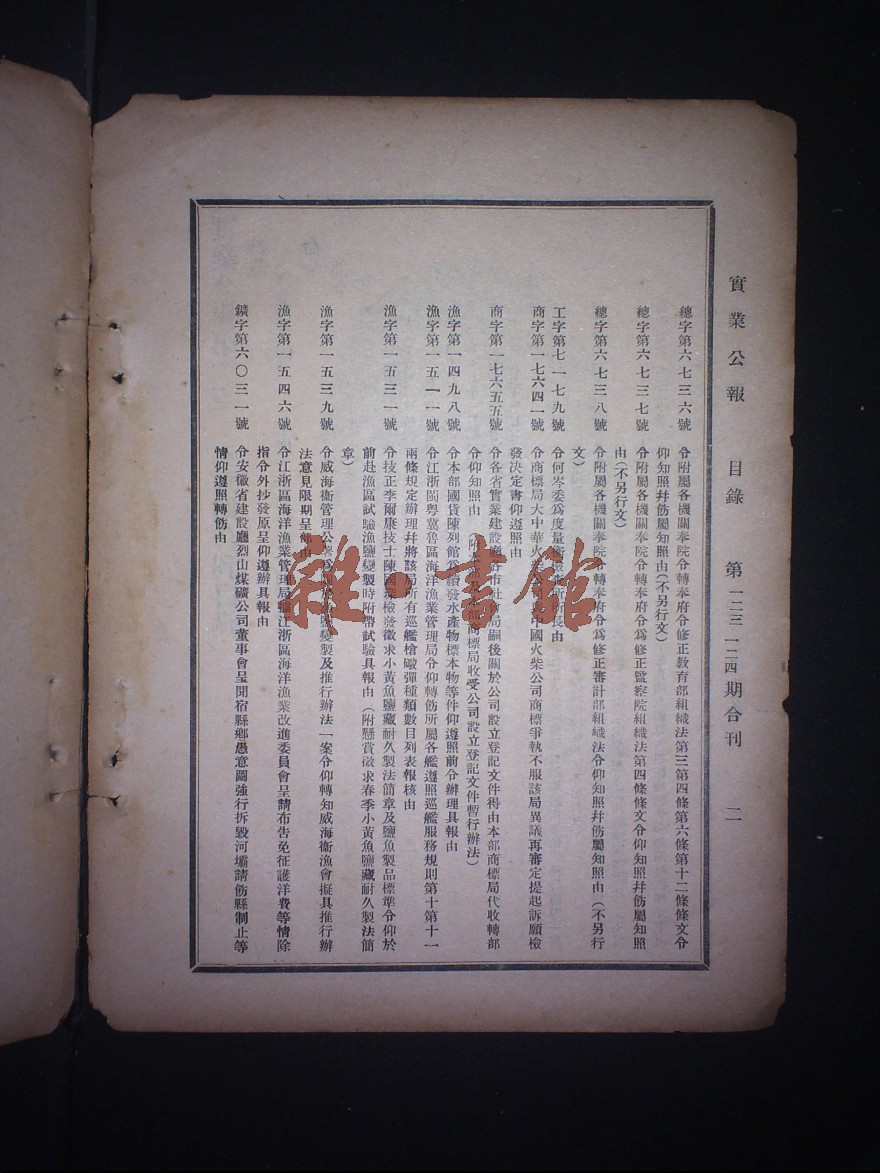 實業公報 目錄 第一二三 一二四期合刊 二
總字第六七三六號 令附屬各機關奉院令轉奉府令修正教育部組織法第三第四條第六條第十二條條文令
仰知照幷飭屬知照由(不另行文)
總字第六七三七號 令附屬各機關奉院令轉奉府令爲修正監察院組織法第四條條文令仰知照幷飭屬知照
由(不另行文)
總字第六七三八號 令附屬各機關奉院令轉奉府令爲修正審計部組織法令仰知照幷飭屬知照由(不另行
文)
工字第七一七九號 令何岑委爲度量衡 所所長由
商字第一七六四一號 令商標局大中華火柴公司 中國火柴公司商標爭執不服該局異議再審定提起訴願檢
發決定書仰遵照由
商字第一七六五五號 令各省實業建設廳各市社會局嗣後關於公司設立登記文件得由本部商標局代收轉部
令仰知照由(附 商標局收受公司設立登記文件暫行辦法)
漁字第一四九八號 令本部國貨陳列館爲續發水產物標本物等件仰遵照前令辦理具報由
漁字第一五一一號 令江浙閩粤冀魯區海洋漁業管理局令仰轉飭所屬各艦遵照巡艦服務規則第十第十一
兩條規定辦理幷將該局所有巡艦槍礮彈種類數目列表報核由
漁字第一五三一號 令技正李爾康技士陳國 檢發徵求小黃魚鹽藏耐久製法簡章及鹽魚製品標準令仰於
前赴漁區試驗漁鹽變製時附帶試驗具報由(附懸賞徵求春季小黃魚鹽藏耐久製法簡
章)
漁字第一五三九號 令威海衞管理公署爲 鹽變製及推行辦法一案令仰轉知威海衞漁會擬具推行辦
法意見限期呈部由
漁字第一五四六號 令江浙區海洋漁業管理局據江浙區海洋漁業改進委員會呈請布告免征護洋費等情除
指令外抄發原呈仰遵辦具報由
鑛字第六〇三一號 令安徽省建設廳烈山煤礦公司董事會呈開宿縣鄉愚意圖強行拆毀河壩請飭縣制止等
情仰遵照轉飭由
雜·書館